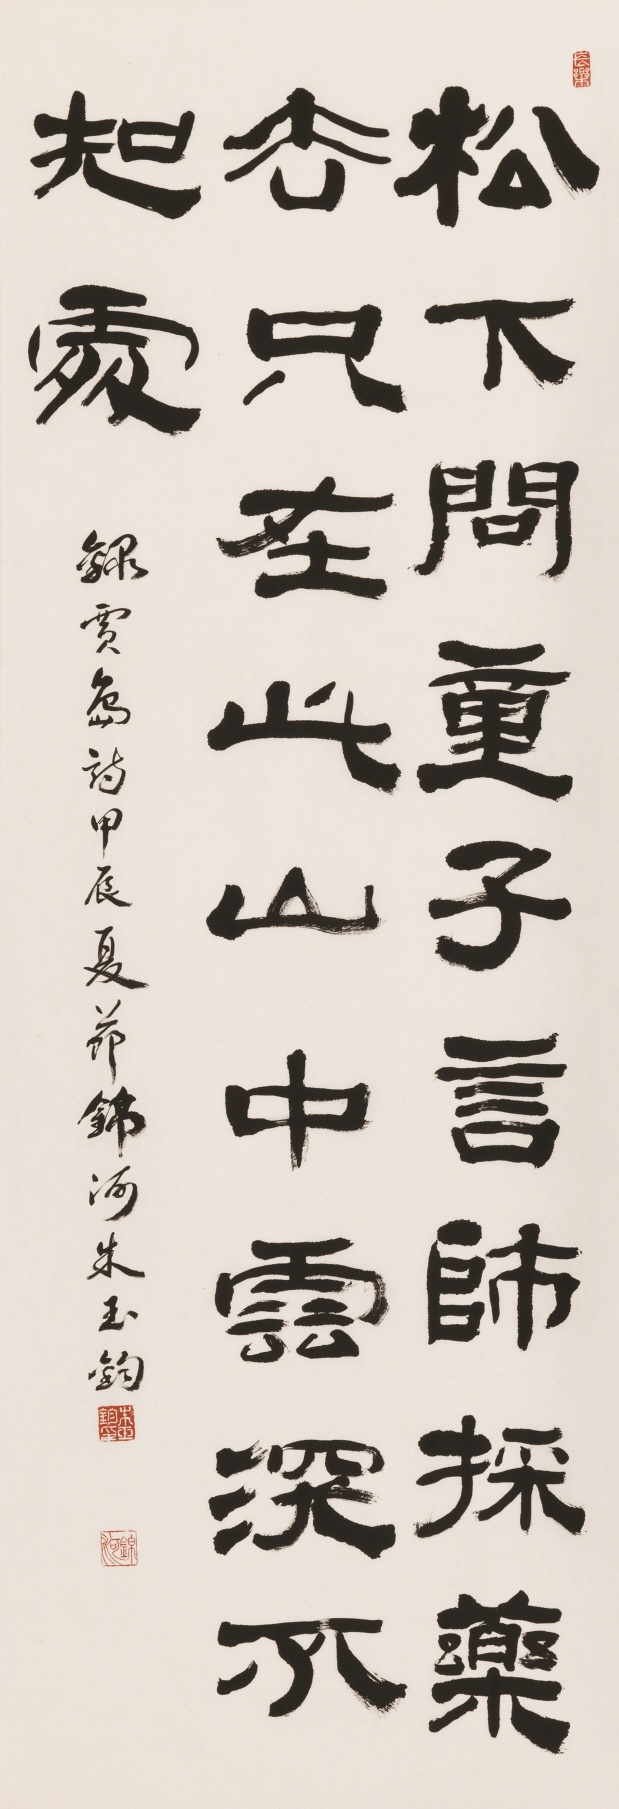 長樂
松下問童子言師採藥
去只在此山中雲深不
知處
錄賈島詩甲辰夏節錦河朱玉鈞
朱玉鈞印
錦河